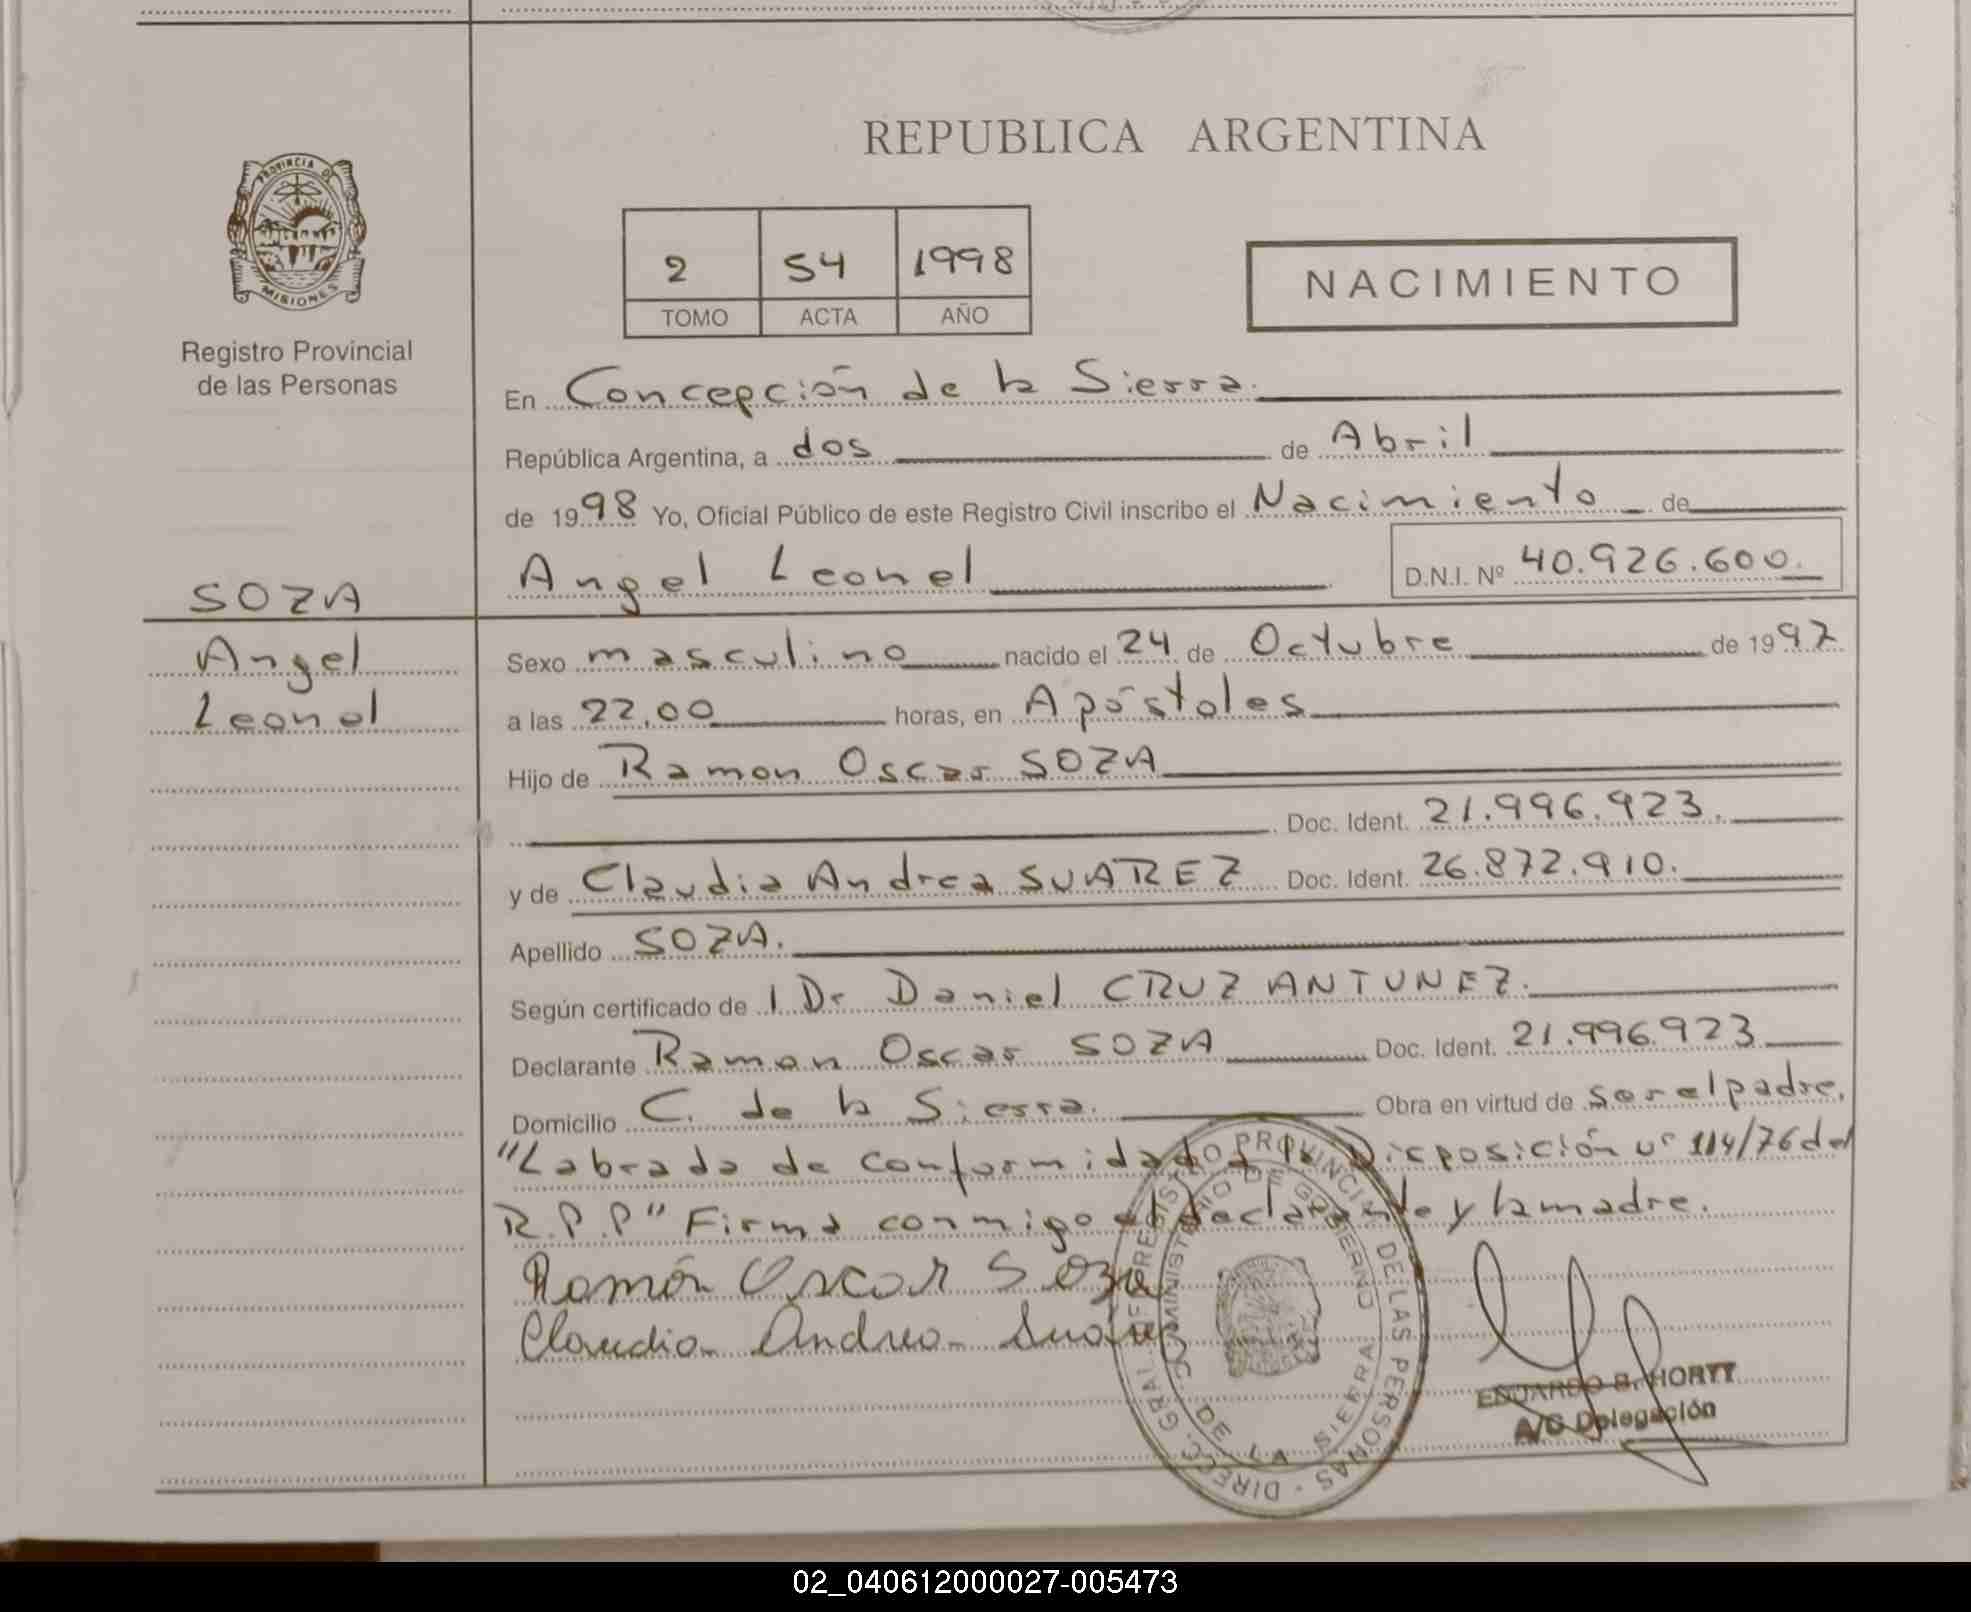 REPUBLICA ARGENTINA
PROVINCIA DE
MISIONES
Registro Provincial
de las Personas
2 54 1998
TOMO ACTA AÑO
NACIMIENTO
En Concepción de la Sierra.
República Argentina, a dos de Abril
de 1998 Yo, Oficial Público de este Registro Civil inscribo el Nacimiento de
Angel Leonel D.N.I. Nº 40.926.600.
SOZA
Angel
Leonel
Sexo masculino nacido el 24 de Octubre de 1997
a las 22,00 horas, en Apóstoles
Hijo de Ramon Oscar SOZA
Doc. Ident. 21.996.923.
y de Claudia Andrea SUAREZ Doc. Ident. 26.872.910.
Apellido SOZA.
Según certificado de 1 Dr Daniel CRUZ ANTUNEZ.
Declarante Ramon Oscar SOZA Doc. Ident. 21.996.923
Domicilio C. de la Sierra. Obra en virtud de ser el padre.
"Labrada de conformidad Disposición nº 114/76 del
R.P.P" Firma conmigo el declarante y la madre.
Ramón Oscar Soza
Claudia Andrea Suárez
DIRECC. GRAL. DE REGISTRO PROVINCIAL DE LAS PERSONAS
MINISTERIO DE GOBIERNO
C. DE LA SIERRA
EDUARDO B. HORTT
A/C Delegación
02_040612000027-005473